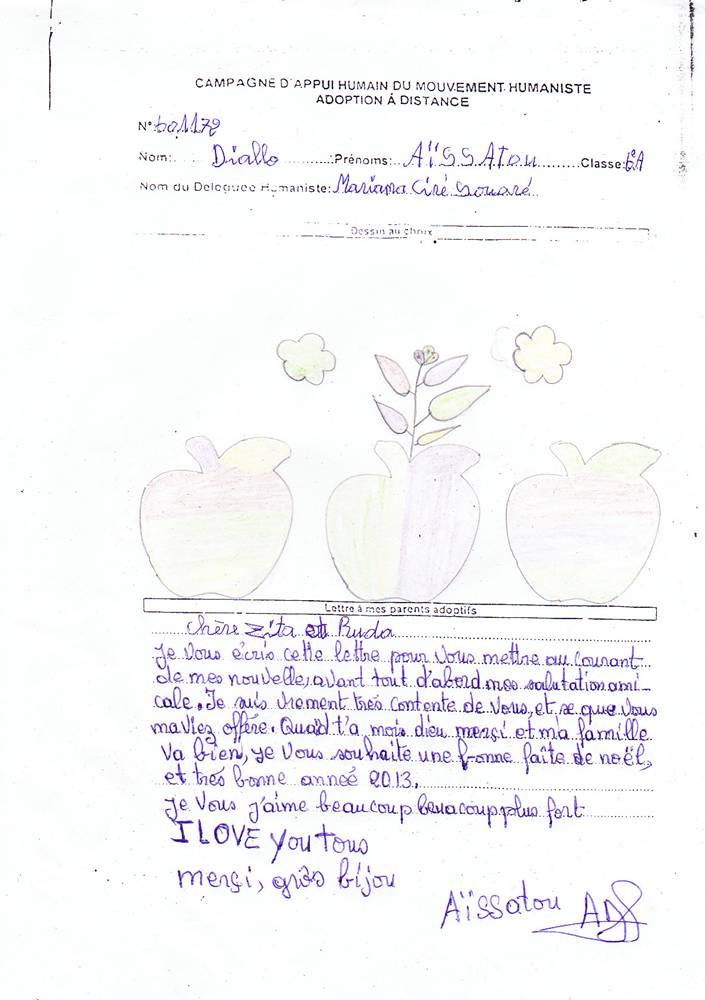 CAMPAGNE D'APPUI HUMAIN DU MOUVEMENT HUMANISTE
ADOPTION Á DISTANCE
N° 601179
Nom: Diallo Prénoms: Aïssatou Classe: 6èA
Nom du Deleguee Humaniste: Mariama Ciré Souaré
Dessin au choix
Lettre à mes parents adoptifs
chère Zita et Ruda
je vous écris cette lettre pour vous mettre au courant
de mes nouvelle, avant tout d'abord mes salutation ami-
cale. Je suis vrement très contente de vous, et se que vous
maviez offère. Quad t'a mois dieu merçi et ma famille
va bien, je vous souhaite une bonne faîte de noël,
et très bonne anneé 2013.
je vous j'aime beaucoup beaucoup plus fort
I LOVE you tous
merçi, gròs bijou
Aïssatou AD